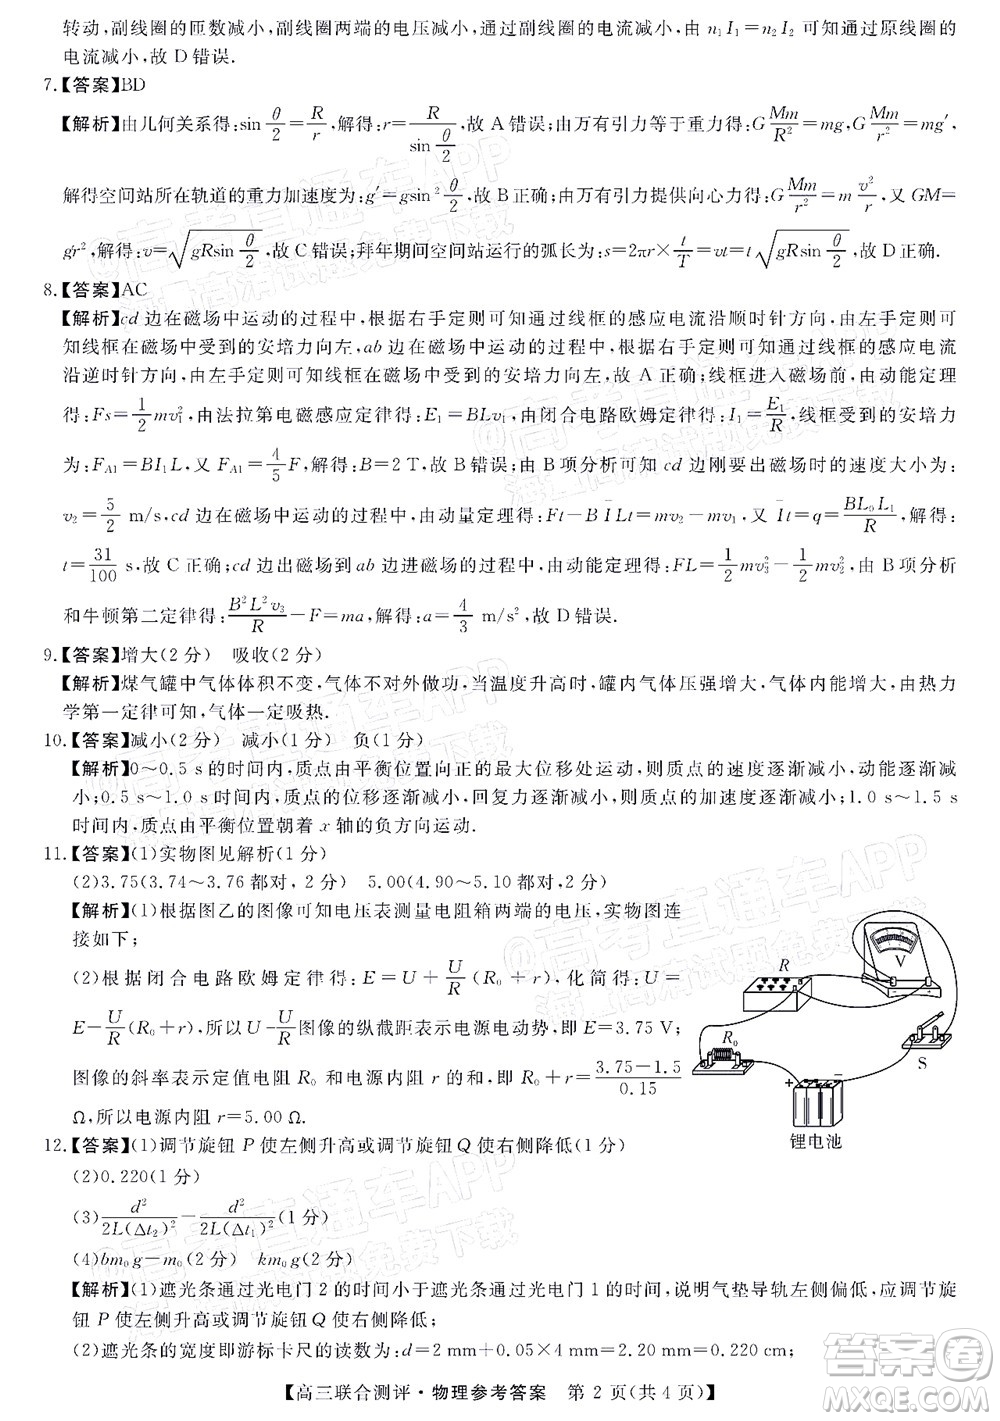 转动,副线圈的匝数减小,副线圈两端的电压减小,通过副线圈的电流减小,由 n₁I₁=n₂I₂ 可知通过原线圈的
电流减小,故 D 错误.
7.【答案】BD
【解析】由几何关系得:sin θ/2=R/r,解得:r=R/(sin θ/2),故 A 错误;由万有引力等于重力得:G Mm/R²=mg,G Mm/r²=mg′,
解得空间站所在轨道的重力加速度为:g′=gsin² θ/2,故 B 正确;由万有引力提供向心力得:G Mm/r²=m v²/r,又 GM=
gr²,解得:v=√(gRsin θ/2),故 C 错误;拜年期间空间站运行的弧长为:s=2πr×t/T=vt=t√(gRsin θ/2),故 D 正确.
8.【答案】AC
【解析】cd 边在磁场中运动的过程中,根据右手定则可知通过线框的感应电流沿顺时针方向,由左手定则可
知线框在磁场中受到的安培力向左,ab 边在磁场中运动的过程中,根据右手定则可知通过线框的感应电流
沿逆时针方向,由左手定则可知线框在磁场中受到的安培力向左,故 A 正确;线框进入磁场前,由动能定理
得:Fs=1/2 mv₁²,由法拉第电磁感应定律得:E₁=BLv₁,由闭合电路欧姆定律得:I₁=E₁/R,线框受到的安培力
为:F_A1=BI₁L,又 F_A1=4/5 F,解得:B=2 T,故 B 错误;由 B 项分析可知 cd 边刚要出磁场时的速度大小为:
v₂=5/2 m/s,cd 边在磁场中运动的过程中,由动量定理得:Ft-B I̅ Lt=mv₂-mv₁,又 I̅t=q=BL₀L₁/R,解得:
t=31/100 s,故 C 正确;cd 边出磁场到 ab 边刚进磁场的过程中,由动能定理得:FL=1/2 mv₃²-1/2 mv₂²,根据平衡条件
和牛顿第二定律得:B²L²v₃/R-F=ma,解得:a=4/3 m/s²,故 D 错误.
9.【答案】增大(2 分)  吸收(2 分)
【解析】煤气罐中气体体积不变,气体不对外做功,当温度升高时,罐内气体压强增大,气体内能增加,由热力
学第一定律可知,气体一定吸热.
10.【答案】减小(2 分)  减小(1 分)  负(1 分)
【解析】0～0.5 s 的时间内,质点由平衡位置向正的最大位移处运动,质点的速度逐渐减小,动能逐渐减
小;0.5 s～1.0 s 时间内,质点的位移逐渐减小,回复力逐渐减小,质点的加速度逐渐减小;1.0 s～1.5 s
时间内,质点由平衡位置朝着 x 轴的负方向运动.
11.【答案】(1)实物图见解析(1 分)
(2)3.75(3.74～3.76 都对,2 分)  5.00(4.90～5.10 都对,2 分)
【解析】(1)根据图乙的图像可知电压表测量电阻箱两端的电压,实物图连
接如下;
(2)根据闭合电路欧姆定律得:E=U+U/R(R₀+r),化简得:U=
E-U/R(R₀+r),所以U-U/R图像的纵截距表示电源电动势,即 E=3.75 V;
图像的斜率表示定值电阻 R₀ 和电源内阻 r 的和,即 R₀+r=(3.75-1.5)/0.15
Ω,所以电源内阻 r=5.00 Ω.
R
V
R₀
S
+
-
锂电池
12.【答案】(1)调节旋钮 P 使左侧升高或调节旋钮 Q 使右侧降低(1 分)
(2)0.220(1 分)
(3)d²/2L(Δt₂)²-d²/2L(Δt₁)²(1 分)
(4)bm₀g-m₀(2 分)  km₀g(2 分)
【解析】(1)遮光条通过光电门 2 的时间小于遮光条通过光电门 1 的时间,说明气垫导轨左侧偏低,应调节旋
钮 P 使左侧升高或调节旋钮 Q 使右侧降低;
(2)遮光条的宽度即游标卡尺的读数为:d=2 mm+0.05×4 mm=2.20 mm=0.220 cm;
【高三联合测评·物理参考答案  第 2 页(共 4 页)】
@高考直通车APP
答案圈
MXQE.COM